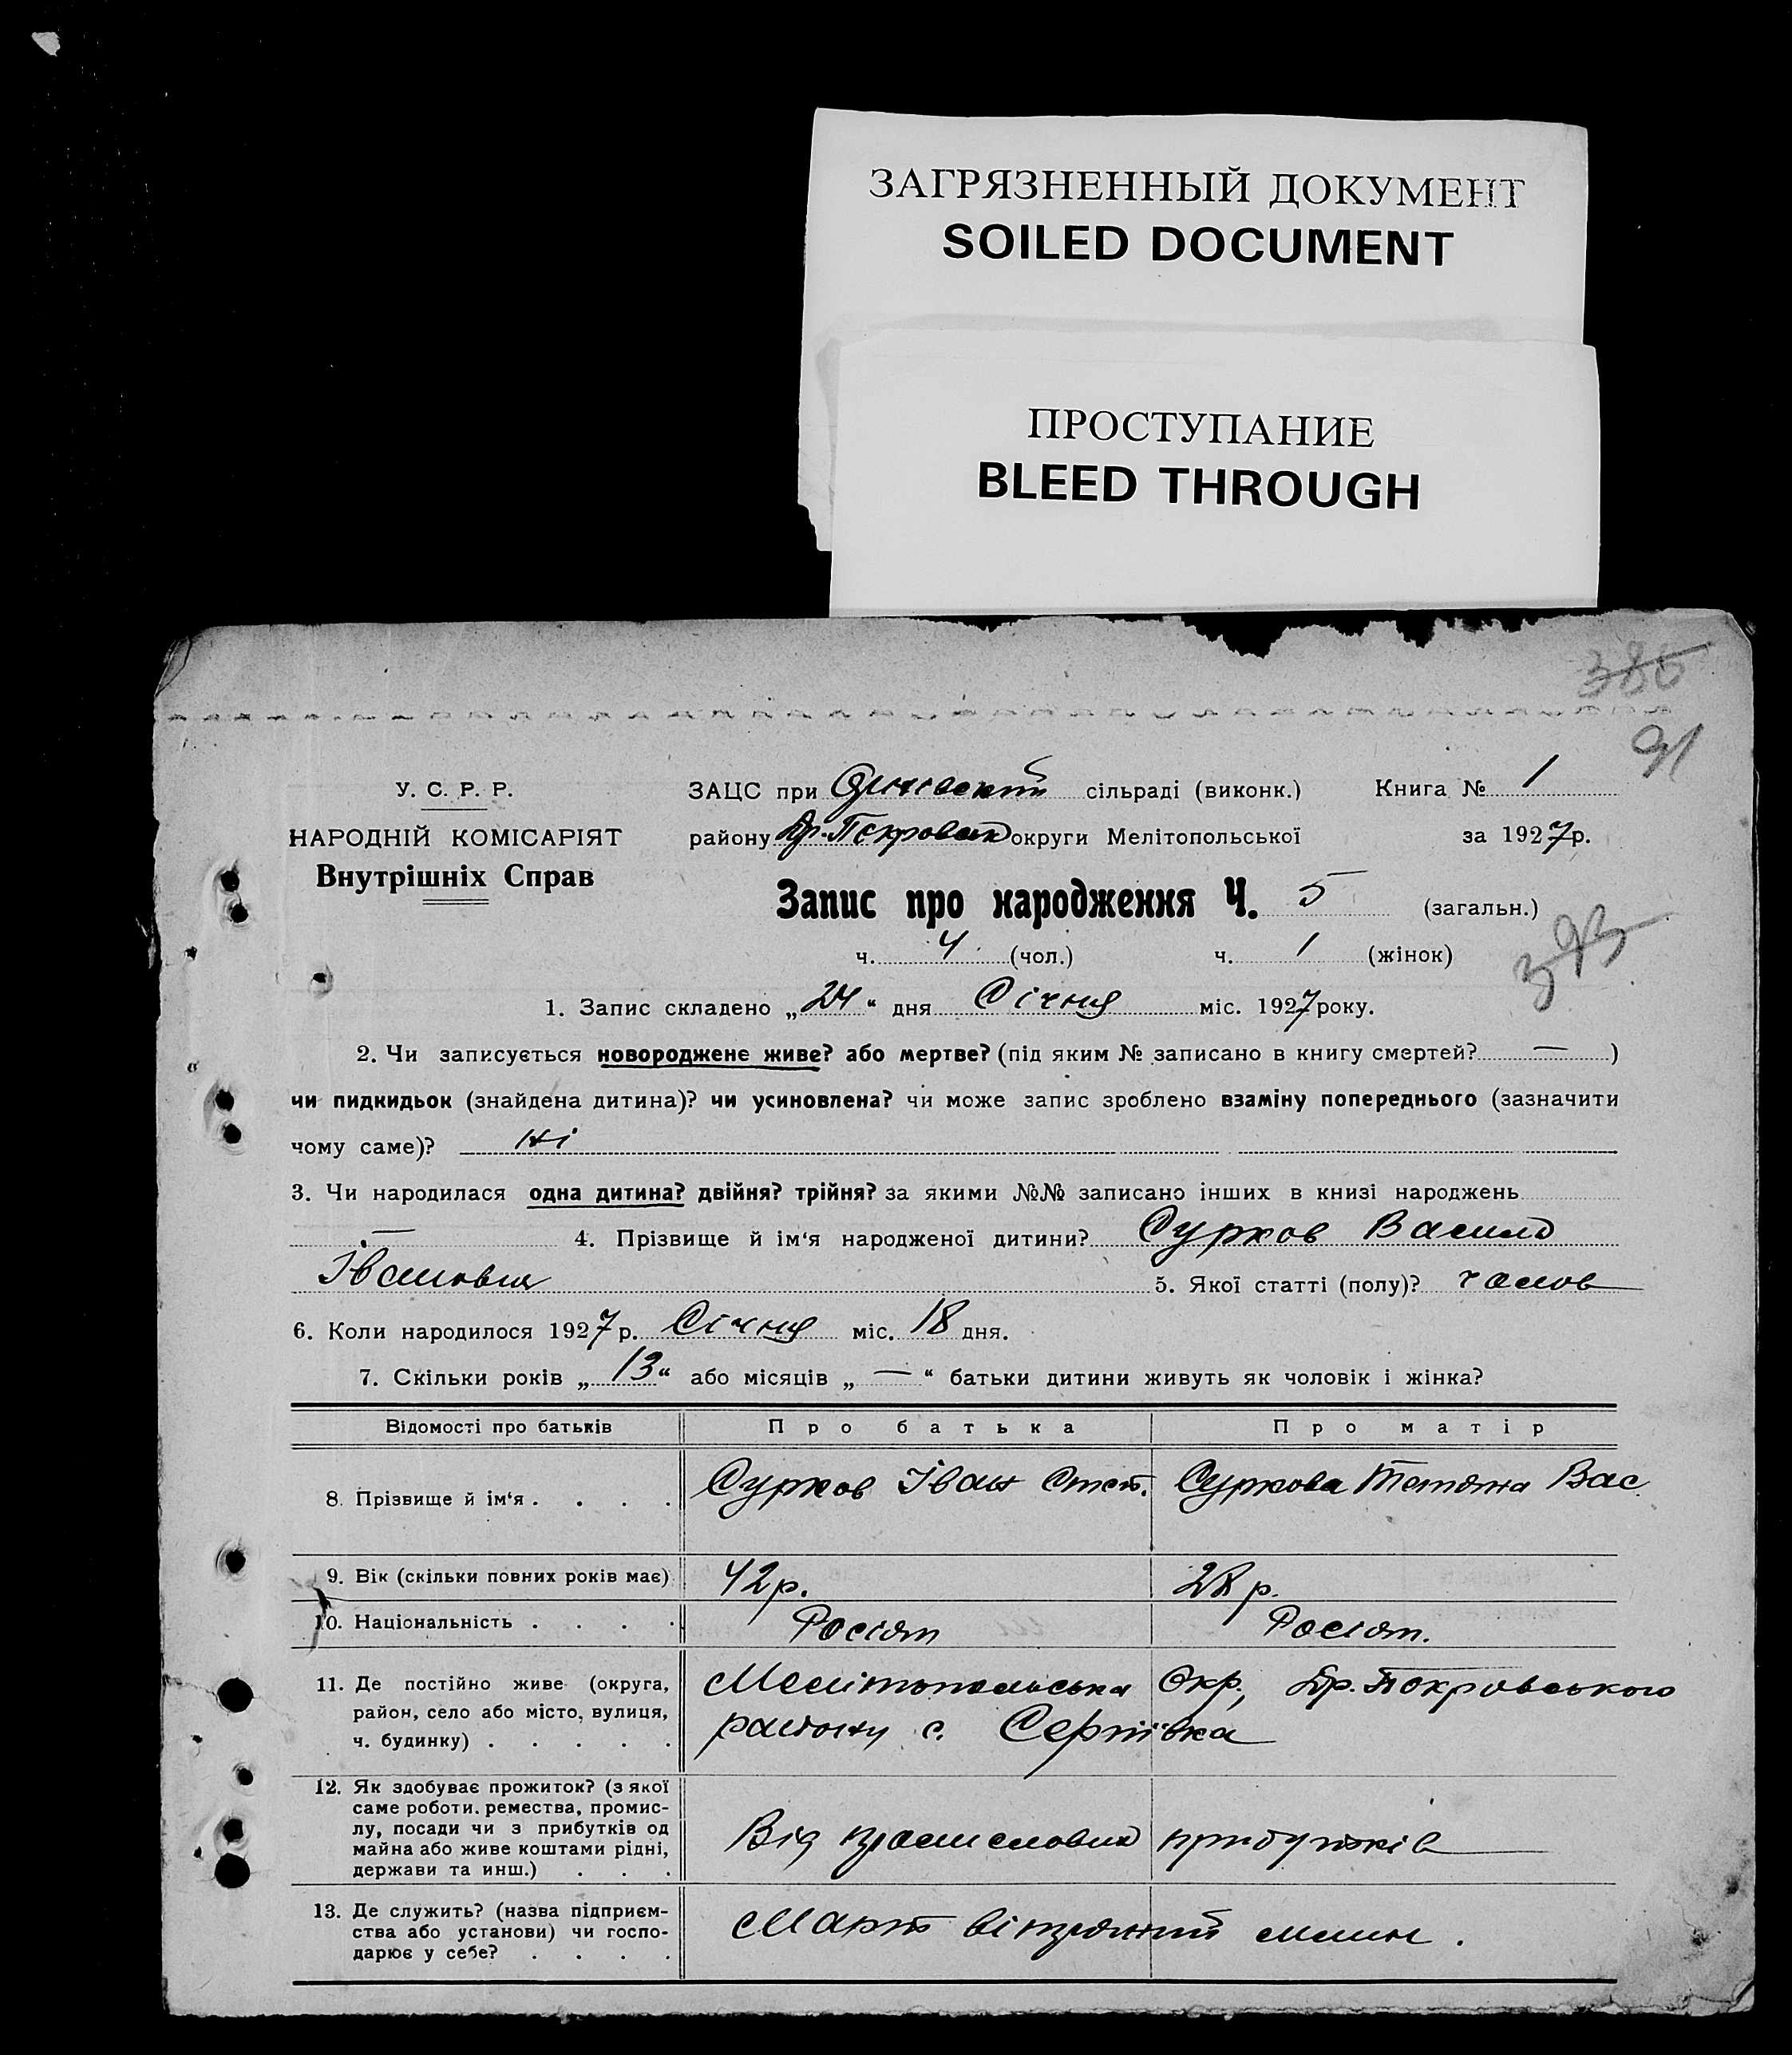 ЗАГРЯЗНЕННЫЙ ДОКУМЕНТ
SOILED DOCUMENT
ПРОСТУПАНИЕ
BLEED THROUGH
386
91
У. С. Р. Р.
НАРОДНІЙ КОМІСАРІЯТ
Внутрішніх Справ
ЗАЦС при сільраді (виконк.) Книга № 1
району Др.-Покровськ округи Мелітопольської за 1927р.
Запис про народження Ч. 5 (загальн.)
ч. 4 (чол.) ч. 1 (жінок)
393
1. Запис складено „24" дня Січня міс. 1927 року.
2. Чи записується новороджене живе? або мертве? (під яким № записано в книгу смертей? — )
чи пидкидьок (знайдена дитина)? чи усиновлена? чи може запис зроблено взаміну попереднього (зазначити
чому саме)? Ні
3. Чи народилася одна дитина? двійня? трійня? за якими №№ записано інших в книзі народжень
— 4. Прізвище й ім'я народженої дитини? Сурков Василь
Іванович 5. Якої статті (полу)? чолов
6. Коли народилося 1927 р. Січня міс. 18 дня.
7. Скільки років „13" або місяців „ — " батьки дитини живуть як чоловік і жінка?
Відомості про батьків Про батька Про матір
8. Прізвище й ім'я . . . . Сурков Іван Степ. Суркова Татяна Вас
9. Вік (скільки повних років має) 42 р. 28 р.
10. Національність . . . . Росіян Росіян.
11. Де постійно живе (округа, Мелітопольська Окр, Др. Покровського
район, село або місто, вулиця, району с. Сергіївка
ч. будинку) . . . . .
12. Як здобуває прожиток? (з якої
саме роботи. ремества, промис-
лу, посади чи з прибутків од Від промислових прибутків
майна або живе коштами рідні,
держави та инш.) . . .
13. Де служить? (назва підприєм-
ства або установи) чи госпо- вітряний млин.
дарює у себе? . . . .